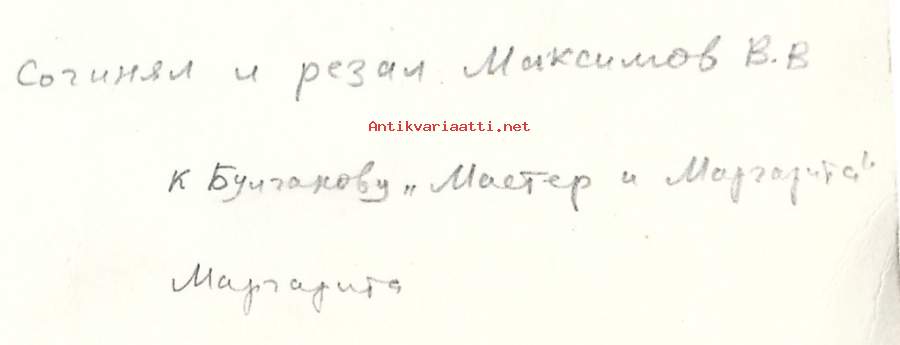 Сочинял и резал Максимов В.В
Antikvariaatti.net
к Булгакову „Мастер и Маргарита"
Маргарита